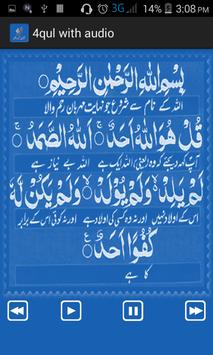 3G 3:08 PM
4qul with audio
بِسْمِ اللهِ الرَّحْمٰنِ الرَّحِيْمِ
اللہ کے نام سے شروع جو نہایت مہربان رحم والا
قُلْ هُوَ اللهُ اَحَدٌ ۚ اَللهُ الصَّمَدُ ۚ
آپ کہہ دیجئے کہ وہ یعنی اللہ ایک ہے اللہ بے نیاز ہے
لَمْ يَلِدْ ۙ وَلَمْ يُوْلَدْ ۙ وَلَمْ يَكُنْ لَّهٗ
اس کے اولاد نہیں اور نہ وہ کسی کی اولاد ہے اور نہ کوئی اس کے برابر
كُفُوًا اَحَدٌ
کا ہے